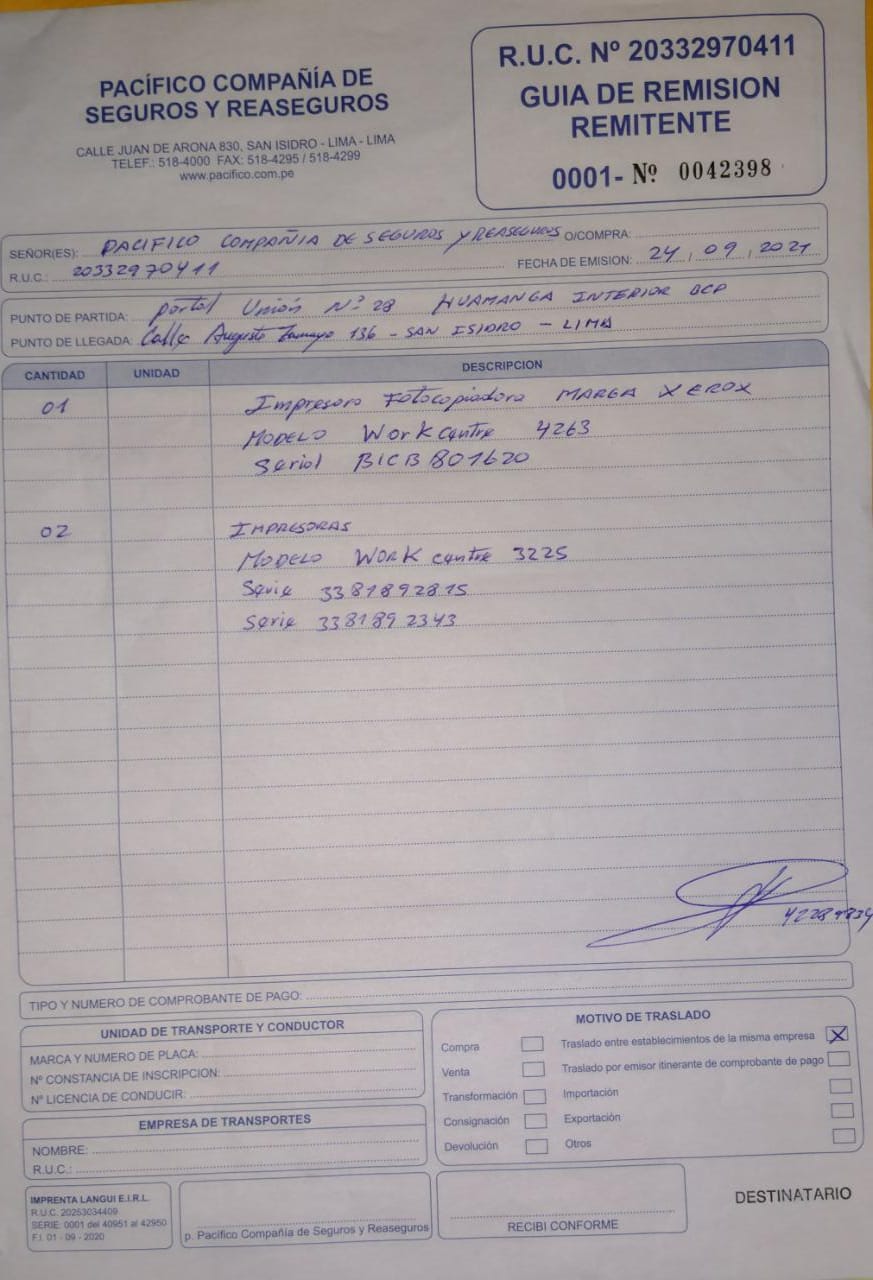 PACÍFICO COMPAÑÍA DE
SEGUROS Y REASEGUROS
CALLE JUAN DE ARONA 830, SAN ISIDRO - LIMA - LIMA
TELEF.: 518-4000 FAX: 518-4295 / 518-4299
www.pacifico.com.pe
R.U.C. Nº 20332970411
GUIA DE REMISION
REMITENTE
0001- Nº 0042398
SEÑOR(ES): PACIFICO COMPAÑIA DE SEGUROS Y REASEGUROS O/COMPRA:
R.U.C.: 20332970411 FECHA DE EMISION: 24 / 09 / 2021
PUNTO DE PARTIDA: Portal Unión Nº 28 HUAMANGA INTERIOR BCP
PUNTO DE LLEGADA: Calle Augusto Tamayo 136 - SAN ISIDRO - LIMA
CANTIDAD UNIDAD DESCRIPCION
01 Impresora Fotocopiadora MARCA XEROX
MODELO Work centre 4263
Serial BICB801620
02 IMPRESORAS
MODELO WORK centre 3225
Serie 3381892815
Serie 3381892343
TIPO Y NUMERO DE COMPROBANTE DE PAGO:
UNIDAD DE TRANSPORTE Y CONDUCTOR
MARCA Y NUMERO DE PLACA:
Nº CONSTANCIA DE INSCRIPCION:
Nº LICENCIA DE CONDUCIR:
EMPRESA DE TRANSPORTES
NOMBRE:
R.U.C.:
MOTIVO DE TRASLADO
Compra Traslado entre establecimientos de la misma empresa X
Venta Traslado por emisor itinerante de comprobante de pago
Transformación Importación
Consignación Exportación
Devolución Otros
IMPRENTA LANGUI E.I.R.L.
R.U.C. 20253034409
SERIE: 0001 del 40951 al 42950
F.I. 01 - 09 - 2020
p. Pacífico Compañía de Seguros y Reaseguros
RECIBI CONFORME
DESTINATARIO